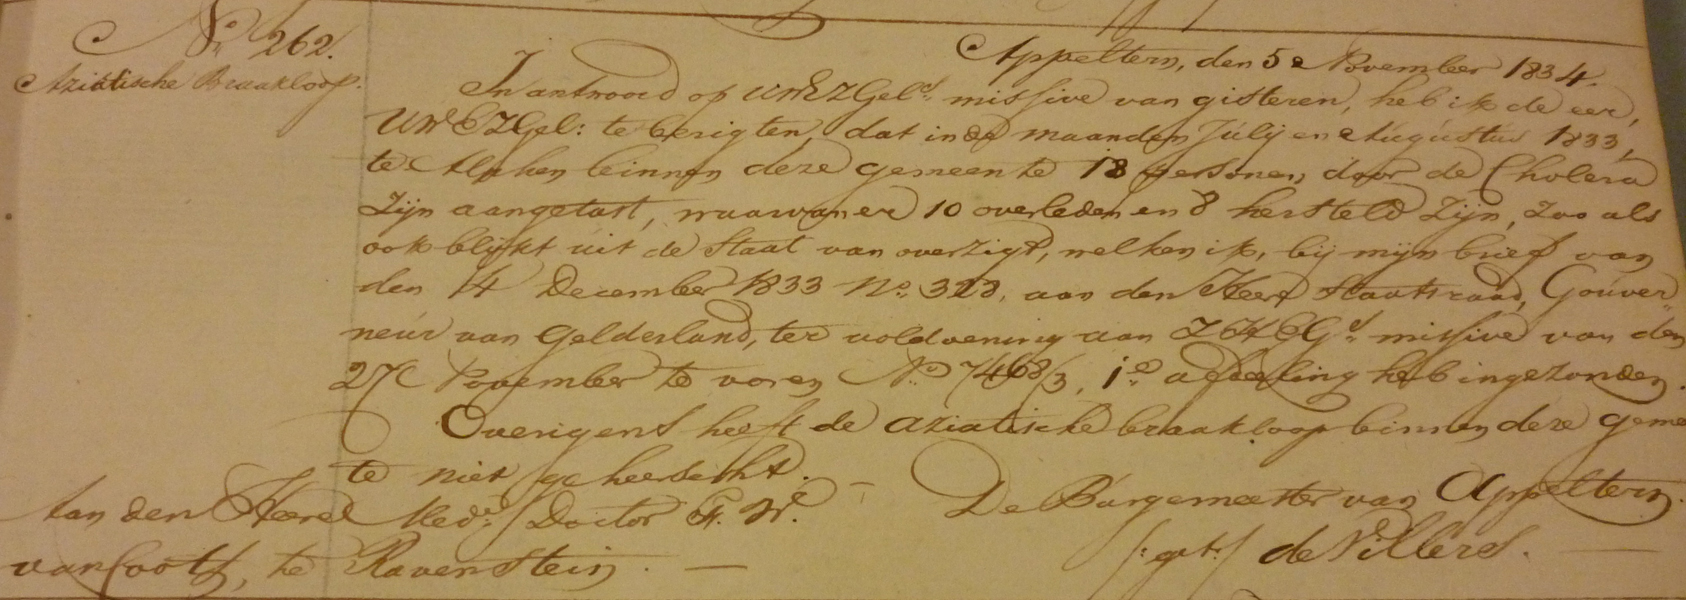 No. 262.
Aziatische Braakloop.
Appeltern, den 5e November 1834.
In antwoord op UWEZGels. missive van gisteren, heb ik de eer,
UWEZGel: te berigten, dat in de maanden Julij en Augustus 1833,
te Alphen binnen deze gemeente 18 personen door de Cholera
zijn aangetast, waarvan er 10 overleden en 8 hersteld zijn, zoo als
ook blijkt uit de Staat van overzigt, welken ik, bij mijn brief van
den 14 December 1833 No. 328, aan den Heer Staatsraad, Gouver-
neur van Gelderland, ter voldoening aan ZHEGs. missive van den
27e November te voren No. 7468/3, 1e. afdeeling heb ingezonden.
Overigens heeft de aziatische braakloop binnen deze gemeen
te niet geheerscht. -
De Burgemeester van Appeltern.
/:get:/ de Villers. —
Aan den Heere Med: Doctor
van Cooth, te Ravenstein. —